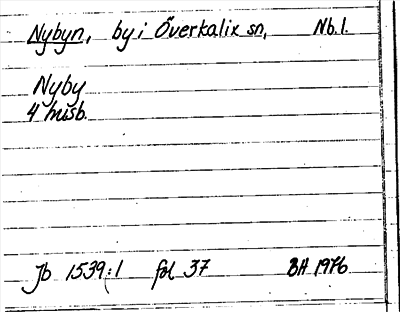 Nybyn, by i Överkalix sn, Nb.l.
Nyby
4 husb.
Jb 1539:1 fol 37 BH 1976